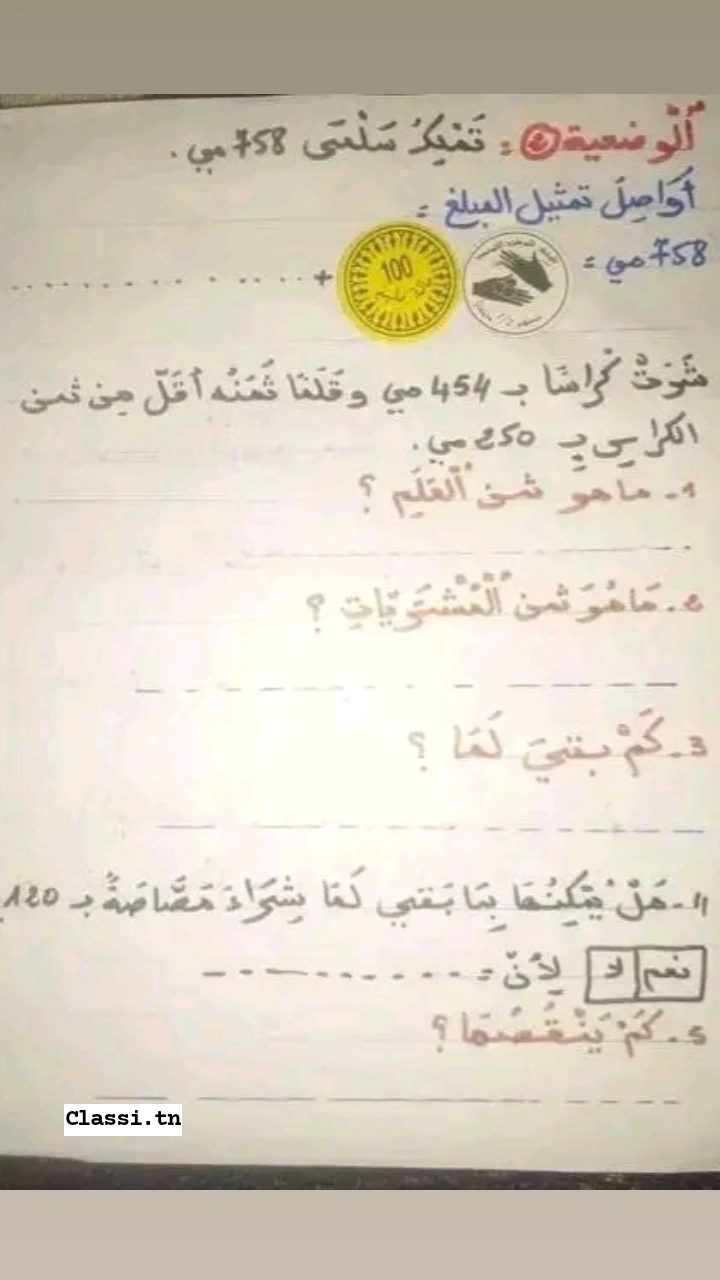 اَلْوضعية② : تَمْلِكُ سَلْمَى 758 مي .
أُوَاصِلُ تمثيل المبلغ :
758 مي =
100 + . . . . . . . . . . . .
شَرَتْ كُرّاسًا بـ 454 مي وقَلَمًا ثَمَنُه أَقَلّ مِن ثمن
الكراس بِـ 250 مي.
1- ما هو ثمن اَلْقَلَمِ ؟
2. مَا هُوَ ثمن اَلْمُشْتَرَيَاتِ ؟
3. كَمْ بقيَ لَهَا ؟
4- هَلْ يُمْكِنُهَا بِمَا بَقي لَهَا شِرَاءَ مَصَّاصَةٍ بـ 120
نعم لا لِأنّ :
5. كَمْ يَنْقُصُهَا ؟
Classi.tn